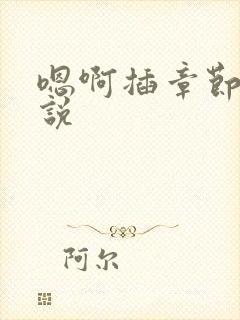 嗯啊插章節
說
阿尔